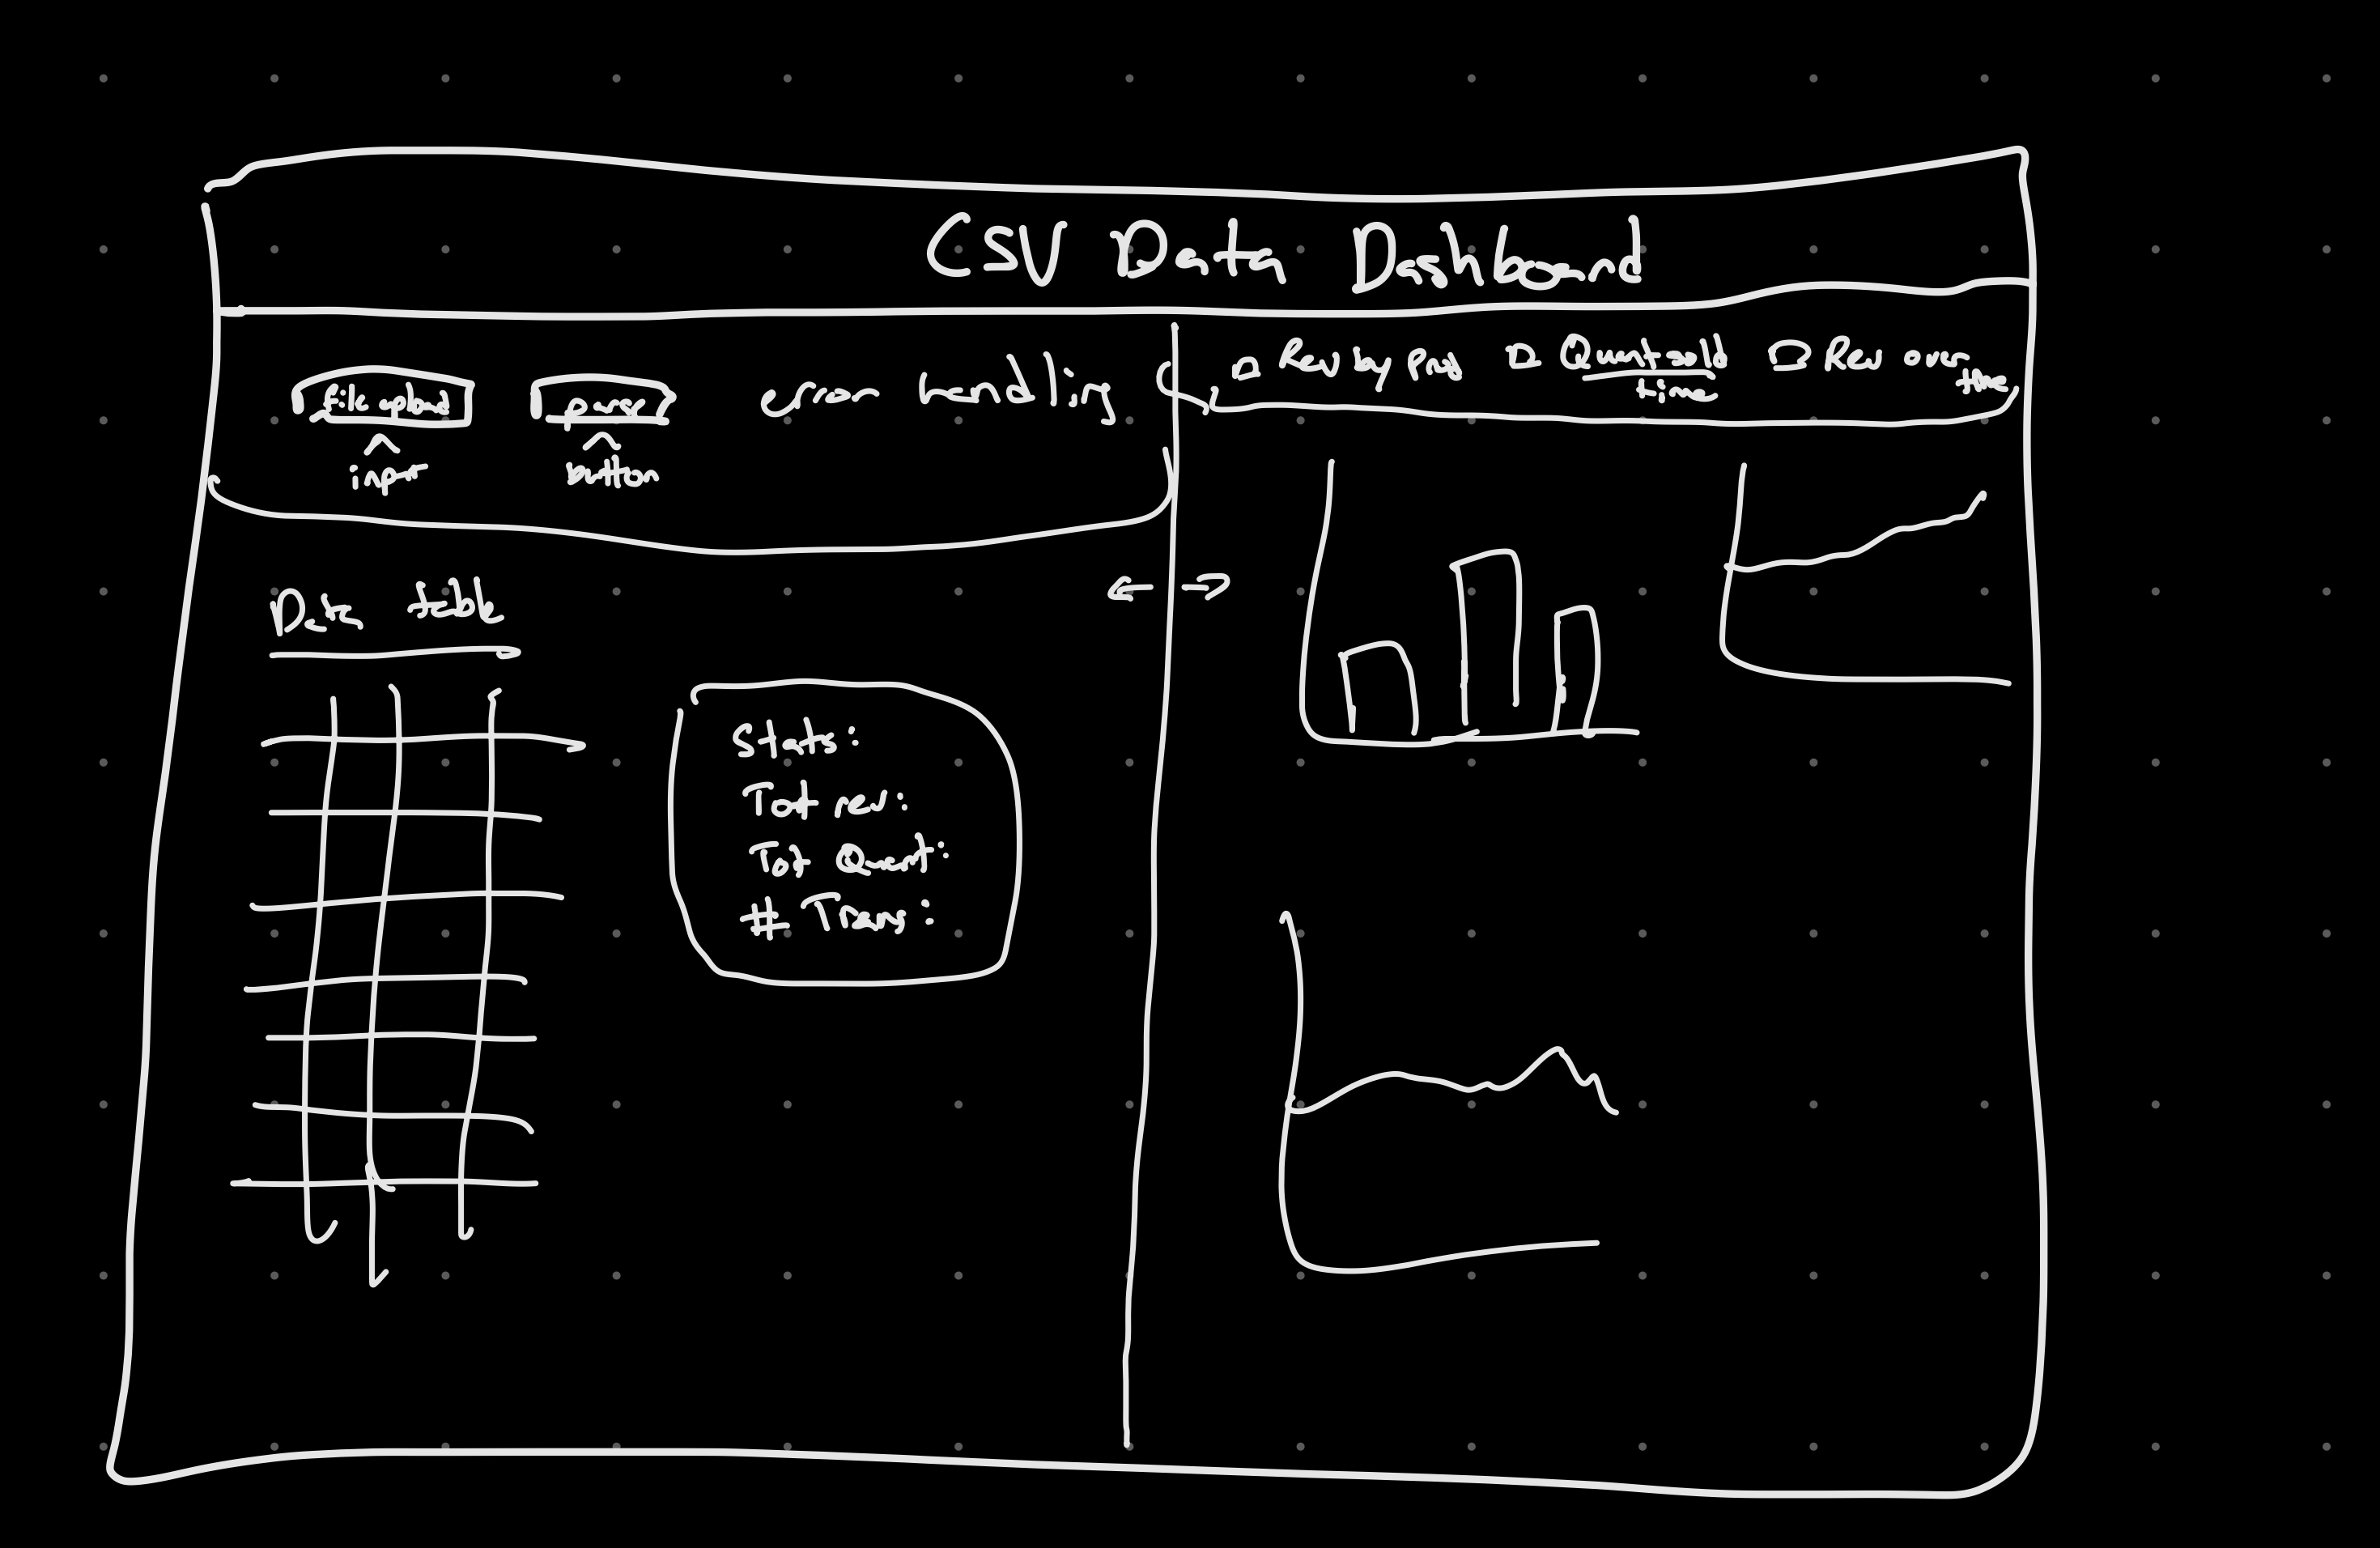 CSV Data Dashboard
File upload
input
parse
button
error handling
Rev by Prod
Quant sold
time
Rev over
time
Data table
Stats:
Tot rev:
Tot Quant:
# Trans: